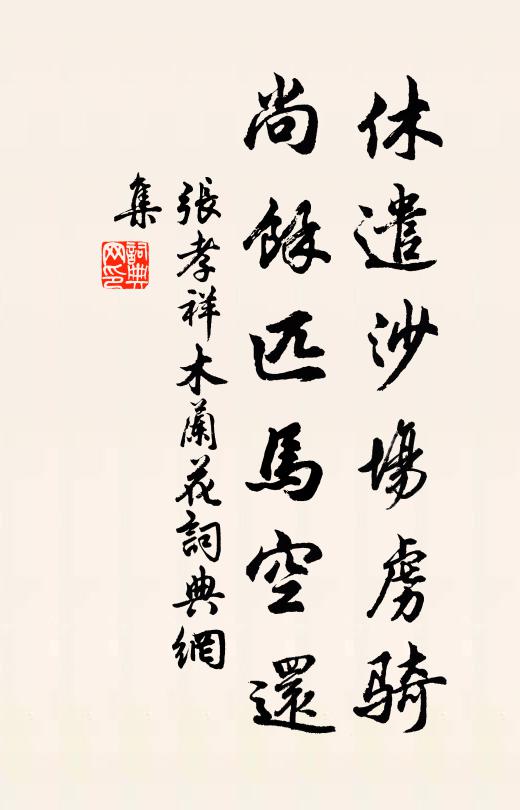 休遣沙場虜騎
尚餘匹馬空還
張孝祥木蘭花詞典網
集
詞典
網印